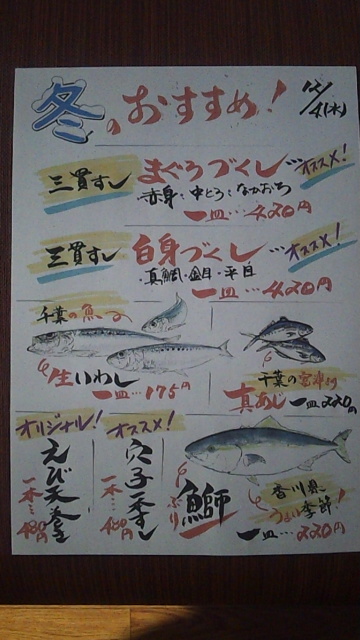 冬のおすすめ！
12/4(木)
三貫すし まぐろづくし…オススメ！
赤身・中とろ・なかおち
一皿…420円
三貫すし 白身づくし…オススメ！
・真鯛・金目・平目
一皿…420円
千葉の魚
生いわし
一皿…175円
千葉の
真あじ 一皿220円
オリジナル！
えび天巻
一本…480円
オススメ！
穴子一本すし
一本…480円
鰤
ぶり
香川県
うまい季節！
一皿…220円